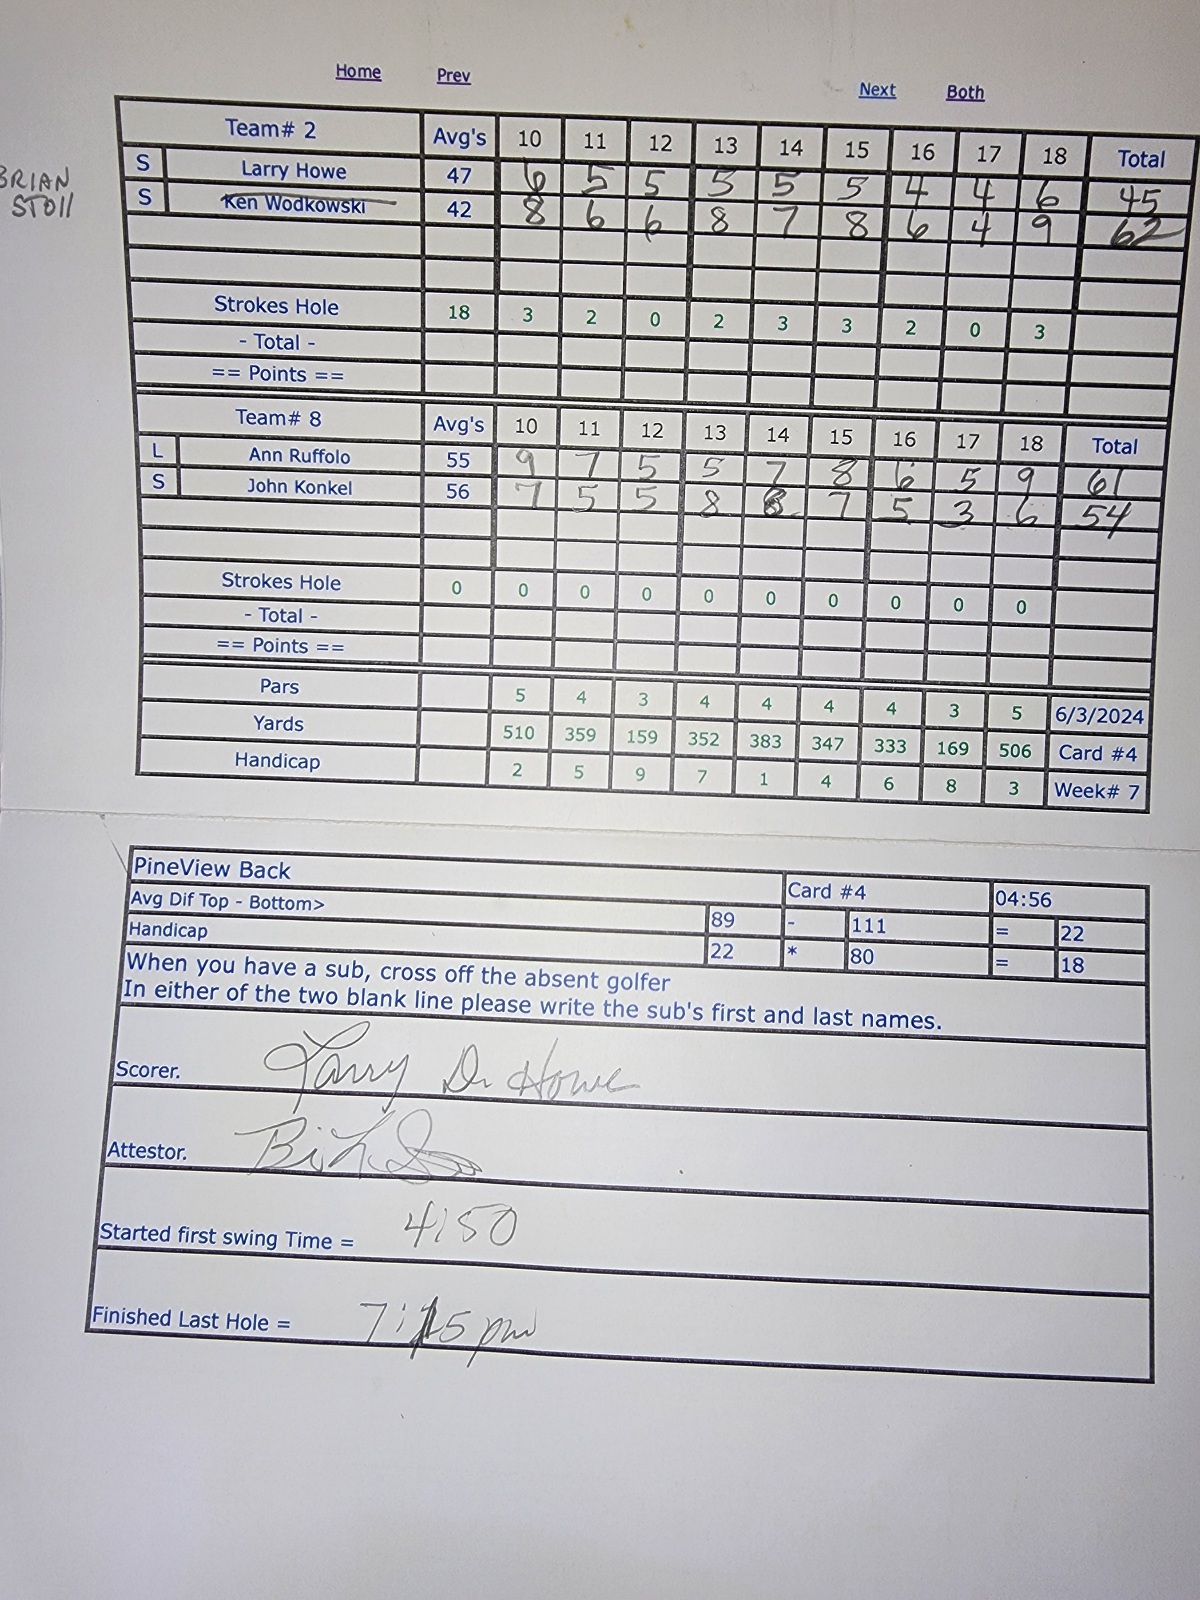 Home Prev Next Both
Team# 2 Avg's 10 11 12 13 14 15 16 17 18 Total
BRIAN
STOll
S Larry Howe 47 6 5 5 5 5 5 4 4 6 45
S Ken Wodkowski 42 8 6 6 8 7 8 6 4 9 62
Strokes Hole 18 3 2 0 2 3 3 2 0 3
- Total -
== Points ==
Team# 8 Avg's 10 11 12 13 14 15 16 17 18 Total
L Ann Ruffolo 55 9 7 5 5 7 8 6 5 9 61
S John Konkel 56 7 5 5 8 8 7 5 3 6 54
Strokes Hole 0 0 0 0 0 0 0 0 0 0
- Total -
== Points ==
Pars 5 4 3 4 4 4 4 3 5 6/3/2024
Yards 510 359 159 352 383 347 333 169 506 Card #4
Handicap 2 5 9 7 1 4 6 8 3 Week# 7
PineView Back Card #4 04:56
Avg Dif Top - Bottom> 89 - 111 = 22
Handicap 22 * 80 = 18
When you have a sub, cross off the absent golfer
In either of the two blank line please write the sub's first and last names.
Scorer. Larry D. Howe
Attestor.
Started first swing Time = 4:50
Finished Last Hole = 7:15 pm